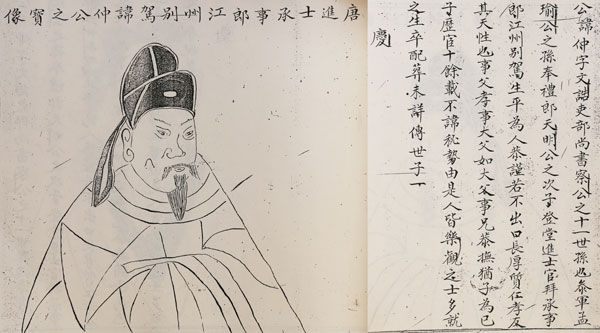 唐進士承事郎江州別駕諱仲公之實像
公諱仲字文誥吏部尚書察公之十一世孫也泰軍孟
瑜公之孫奉禮郎天明公之次子登堂進士官拜承事
郎江州別駕生平為人恭謹若不出口長厚質仁孝友
其天性也事父孝事大父如大父事兄恭撫猶子為己
子歷官十餘載不諱秘勢由是人皆樂觀之士多就
之生卒配葬未詳傳世子一
慶